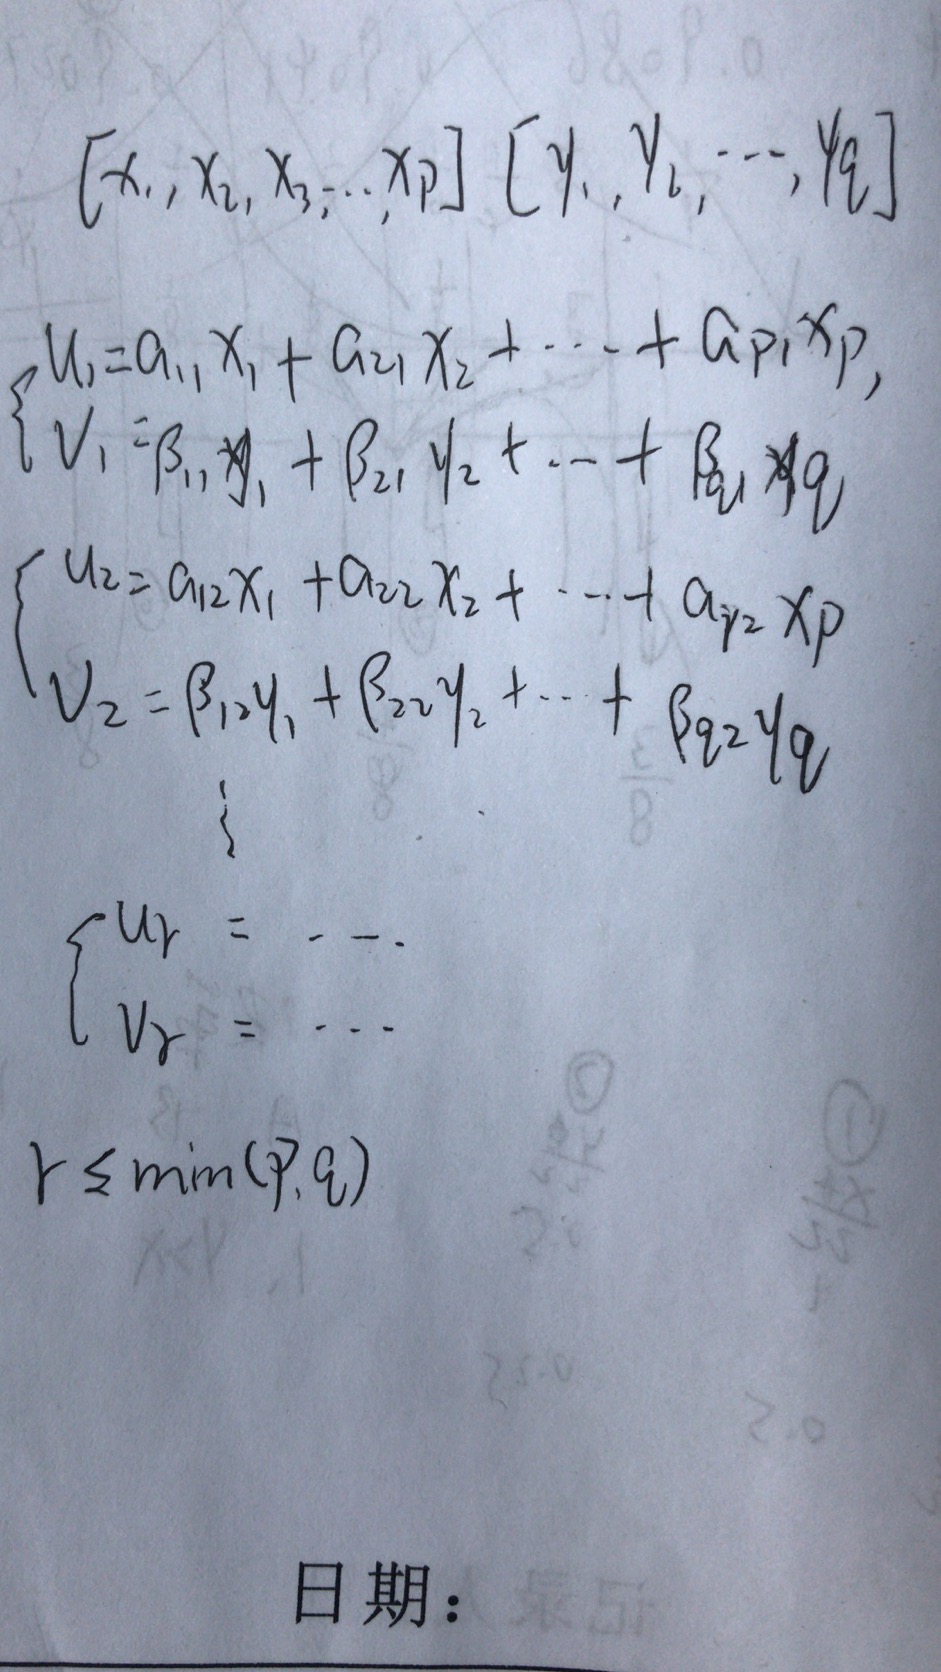 [x₁, x₂, x₃, ..., xp] [y₁, y₂, ..., yq]
u₁ = a₁₁x₁ + a₂₁x₂ + ... + ap₁xp,
v₁ = β₁₁y₁ + β₂₁y₂ + ... + βq₁yq
u₂ = a₁₂x₁ + a₂₂x₂ + ... + ap₂xp
v₂ = β₁₂y₁ + β₂₂y₂ + ... + βq₂yq
ur = ...
vr = ...
r ≤ min(p,q)
日期：